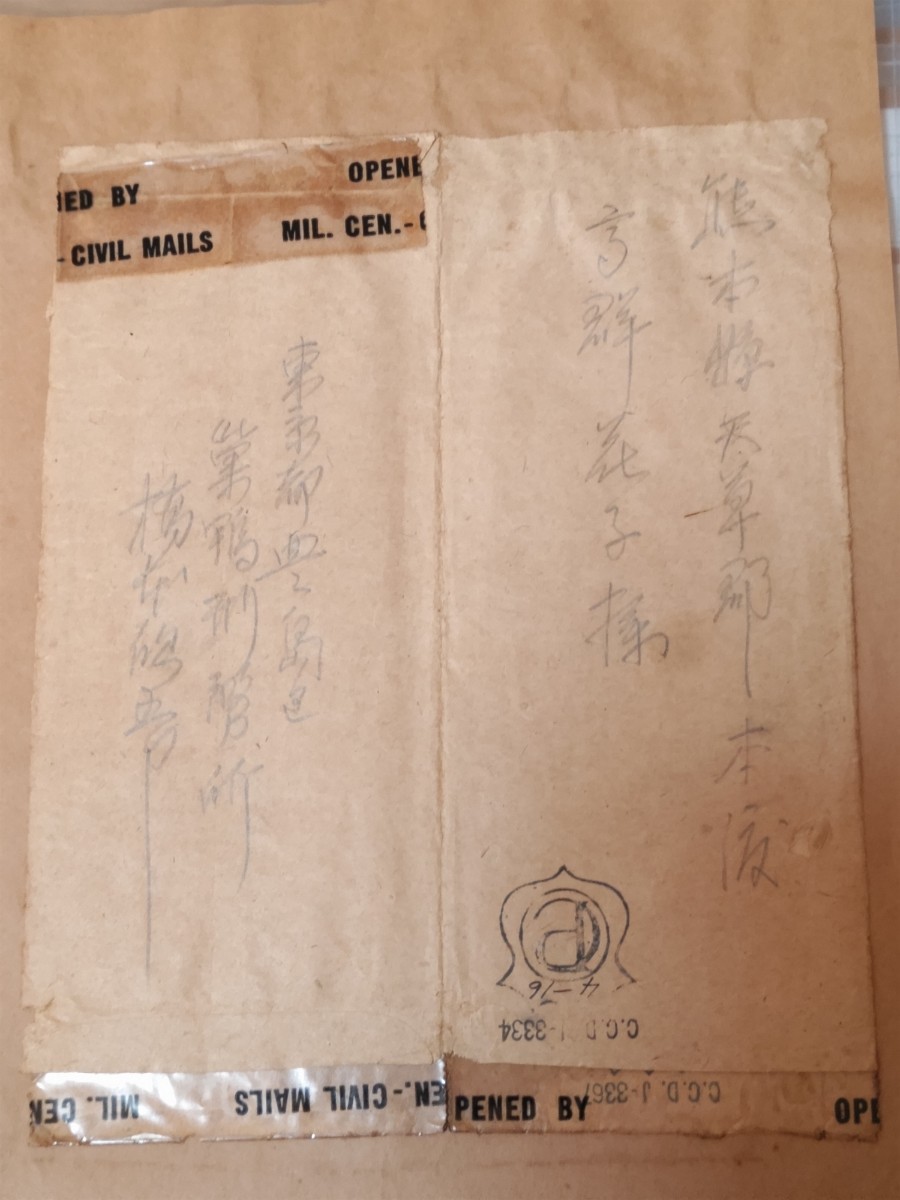 熊本縣天草郡本渡
高群花子様
東京都豊島区
巣鴨刑務所
橋本欣五郎
NED BY OPENE
-CIVIL MAILS MIL. CEN.-
4-16
C.C.D. J-3334
C.C.D. J-3367
EN.-CIVIL MAILS MIL. CEN
PENED BY OPE